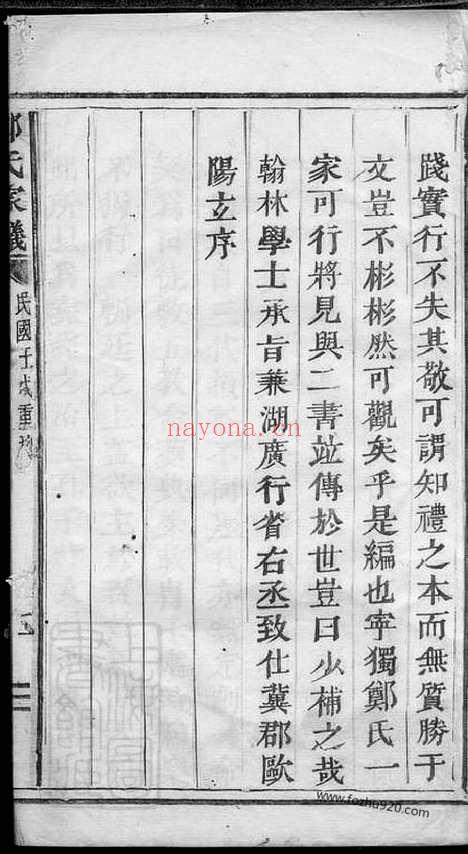 踐實行不失其敬可謂知禮之本而無質勝于
文豈不彬彬然可觀矣乎是編也寧獨鄭氏一
家可行將見與二書竝傳於世豈曰少補之哉
翰林學士承旨兼湖廣行省右丞致仕冀郡歐
陽玄序
氏家儀
民國壬戌重
nayona.cn
www.fozhu920.com